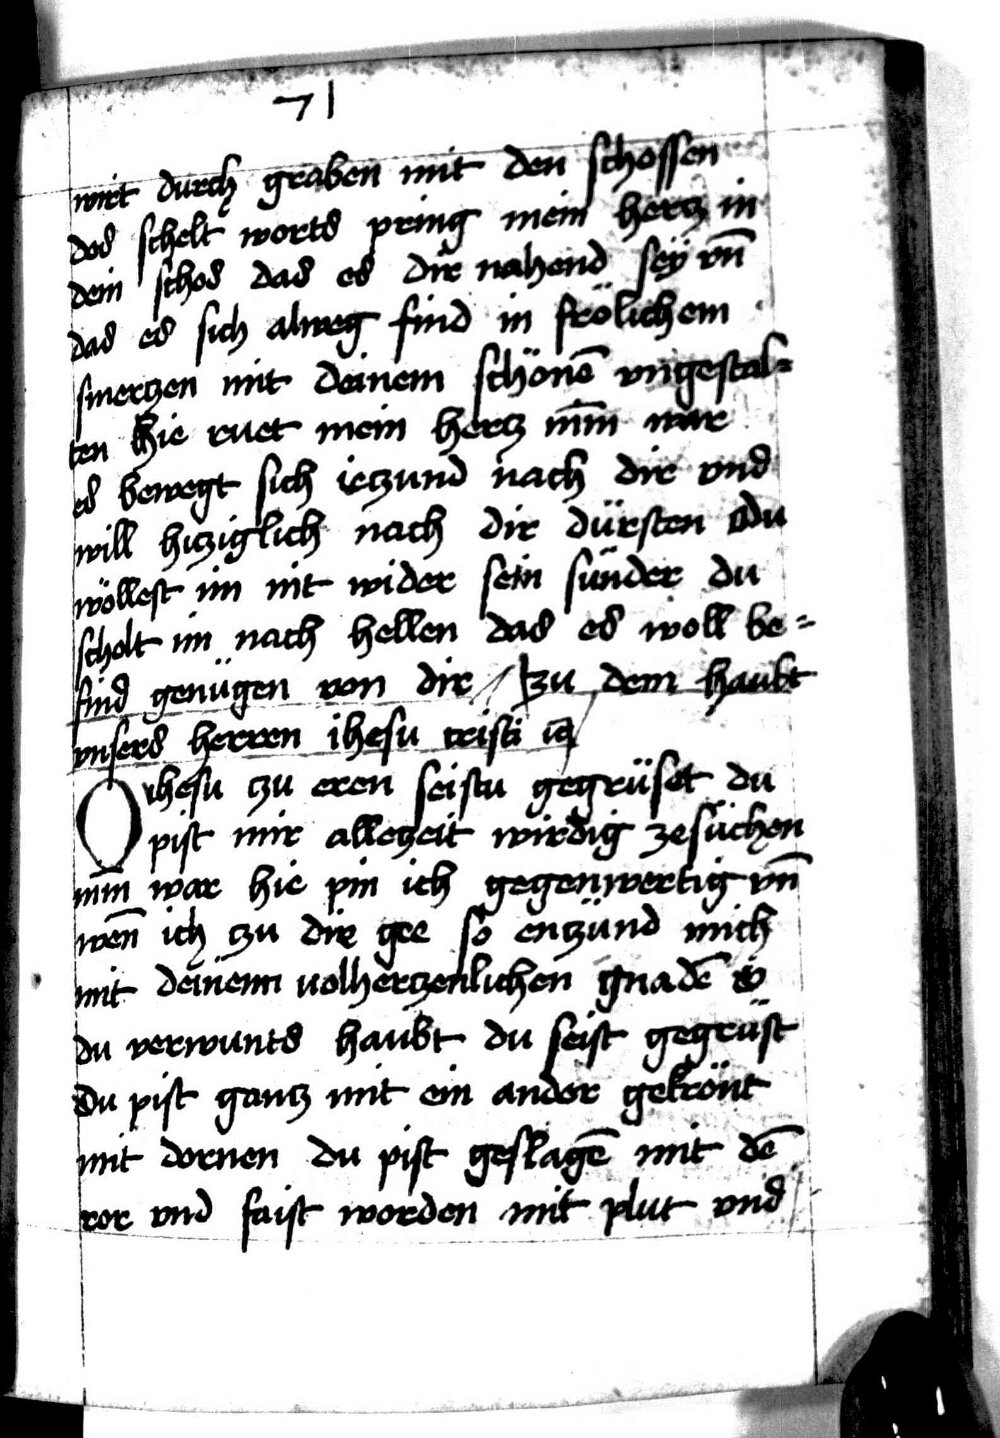 71
wirt durch graben mit den schossen
des schelt worts pring mein hertz in
dein schos das es dir nahend sey vn̄
das es sich alweg find in frölichem
smertzen mit deinem schönē vngestal=
ten hie ruet mein hertz nīm war
es bewegt sich ietzund nach dir vnd
will hitziglich nach dir dürsten du
wöllest im nit wider sein sunder du
scholt im nach hellen das es woll be=
find genügen von dir / zu dem haubt
vnsers herren ihesu cristi
O ihesu tzu eren seistu gegrüset du
pist mir alletzeit wirdig zesüchen
nīm war hie pin ich gegenwertig vn̄
wen̄ ich tzu dir gee so entzünd mich
mit deinem volhertzenlichen gnadē O
du verwunts haubt du seist gegrüst
du pist gantz mit ein ander gekrönt
mit dornen du pist geslagē mit dē
ror vnd faist worden mit plut vnd